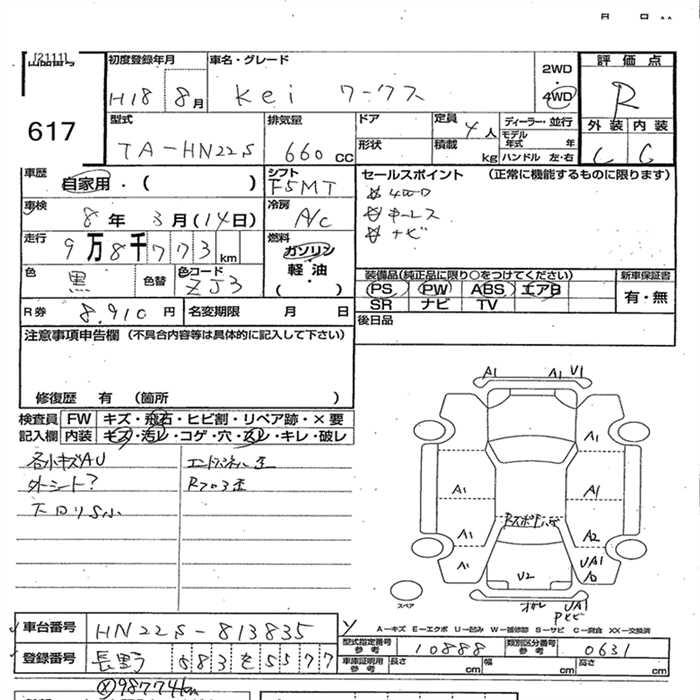 初度登録年月 車名・グレード 評価点
H18 8月 Kei ワークス 2WD・4WD R
617
型式 排気量 ドア 定員 ディーラー・並行 外装 内装
TA-HN22S 660cc 形状 4人 積載 kg モデル年式 年 ハンドル 左・右 C C
車歴 自家用・( ) シフト F5MT
セールスポイント (正常に機能するものに限ります)
車検 8年 3月(14日) 冷房 A/C
4WD
キーレス
ナビ
走行 9万8千773km 燃料 ガソリン・軽油( ・ )
色 黒 色替 色コード ZJ3
装備品(純正品に限り○をつけてください) 新車保証書
PS PW ABS エアB 有・無
SR ナビ TV
R券 8,910円 名変期限 月 日
後日品
注意事項申告欄 (不具合内容等は具体的に記入して下さい)
修復歴 有 (箇所 )
検査員 FW キズ・飛石・ヒビ割・リペア跡・×要
記入欄 内装 キズ・汚レ・コゲ・穴・スレ・キレ・破レ
各小キズAU エンドパネル歪
外シート? Rフロア歪
下回りS小
A1 A1 U1
A1
A1 A1
A1 A2
A1 UA1
U2
スペア UA1
車台番号 HN22S-813835
A-キズ E-エクボ U-凹み W-補修跡 S-サビ C-腐食 XX-交換済
型式指定番号 参考 10888 類別区分番号 参考 0631
登録番号 長野 583 を 5577
車庫証明用 参考 長さ cm 幅 cm 高さ cm
98774km